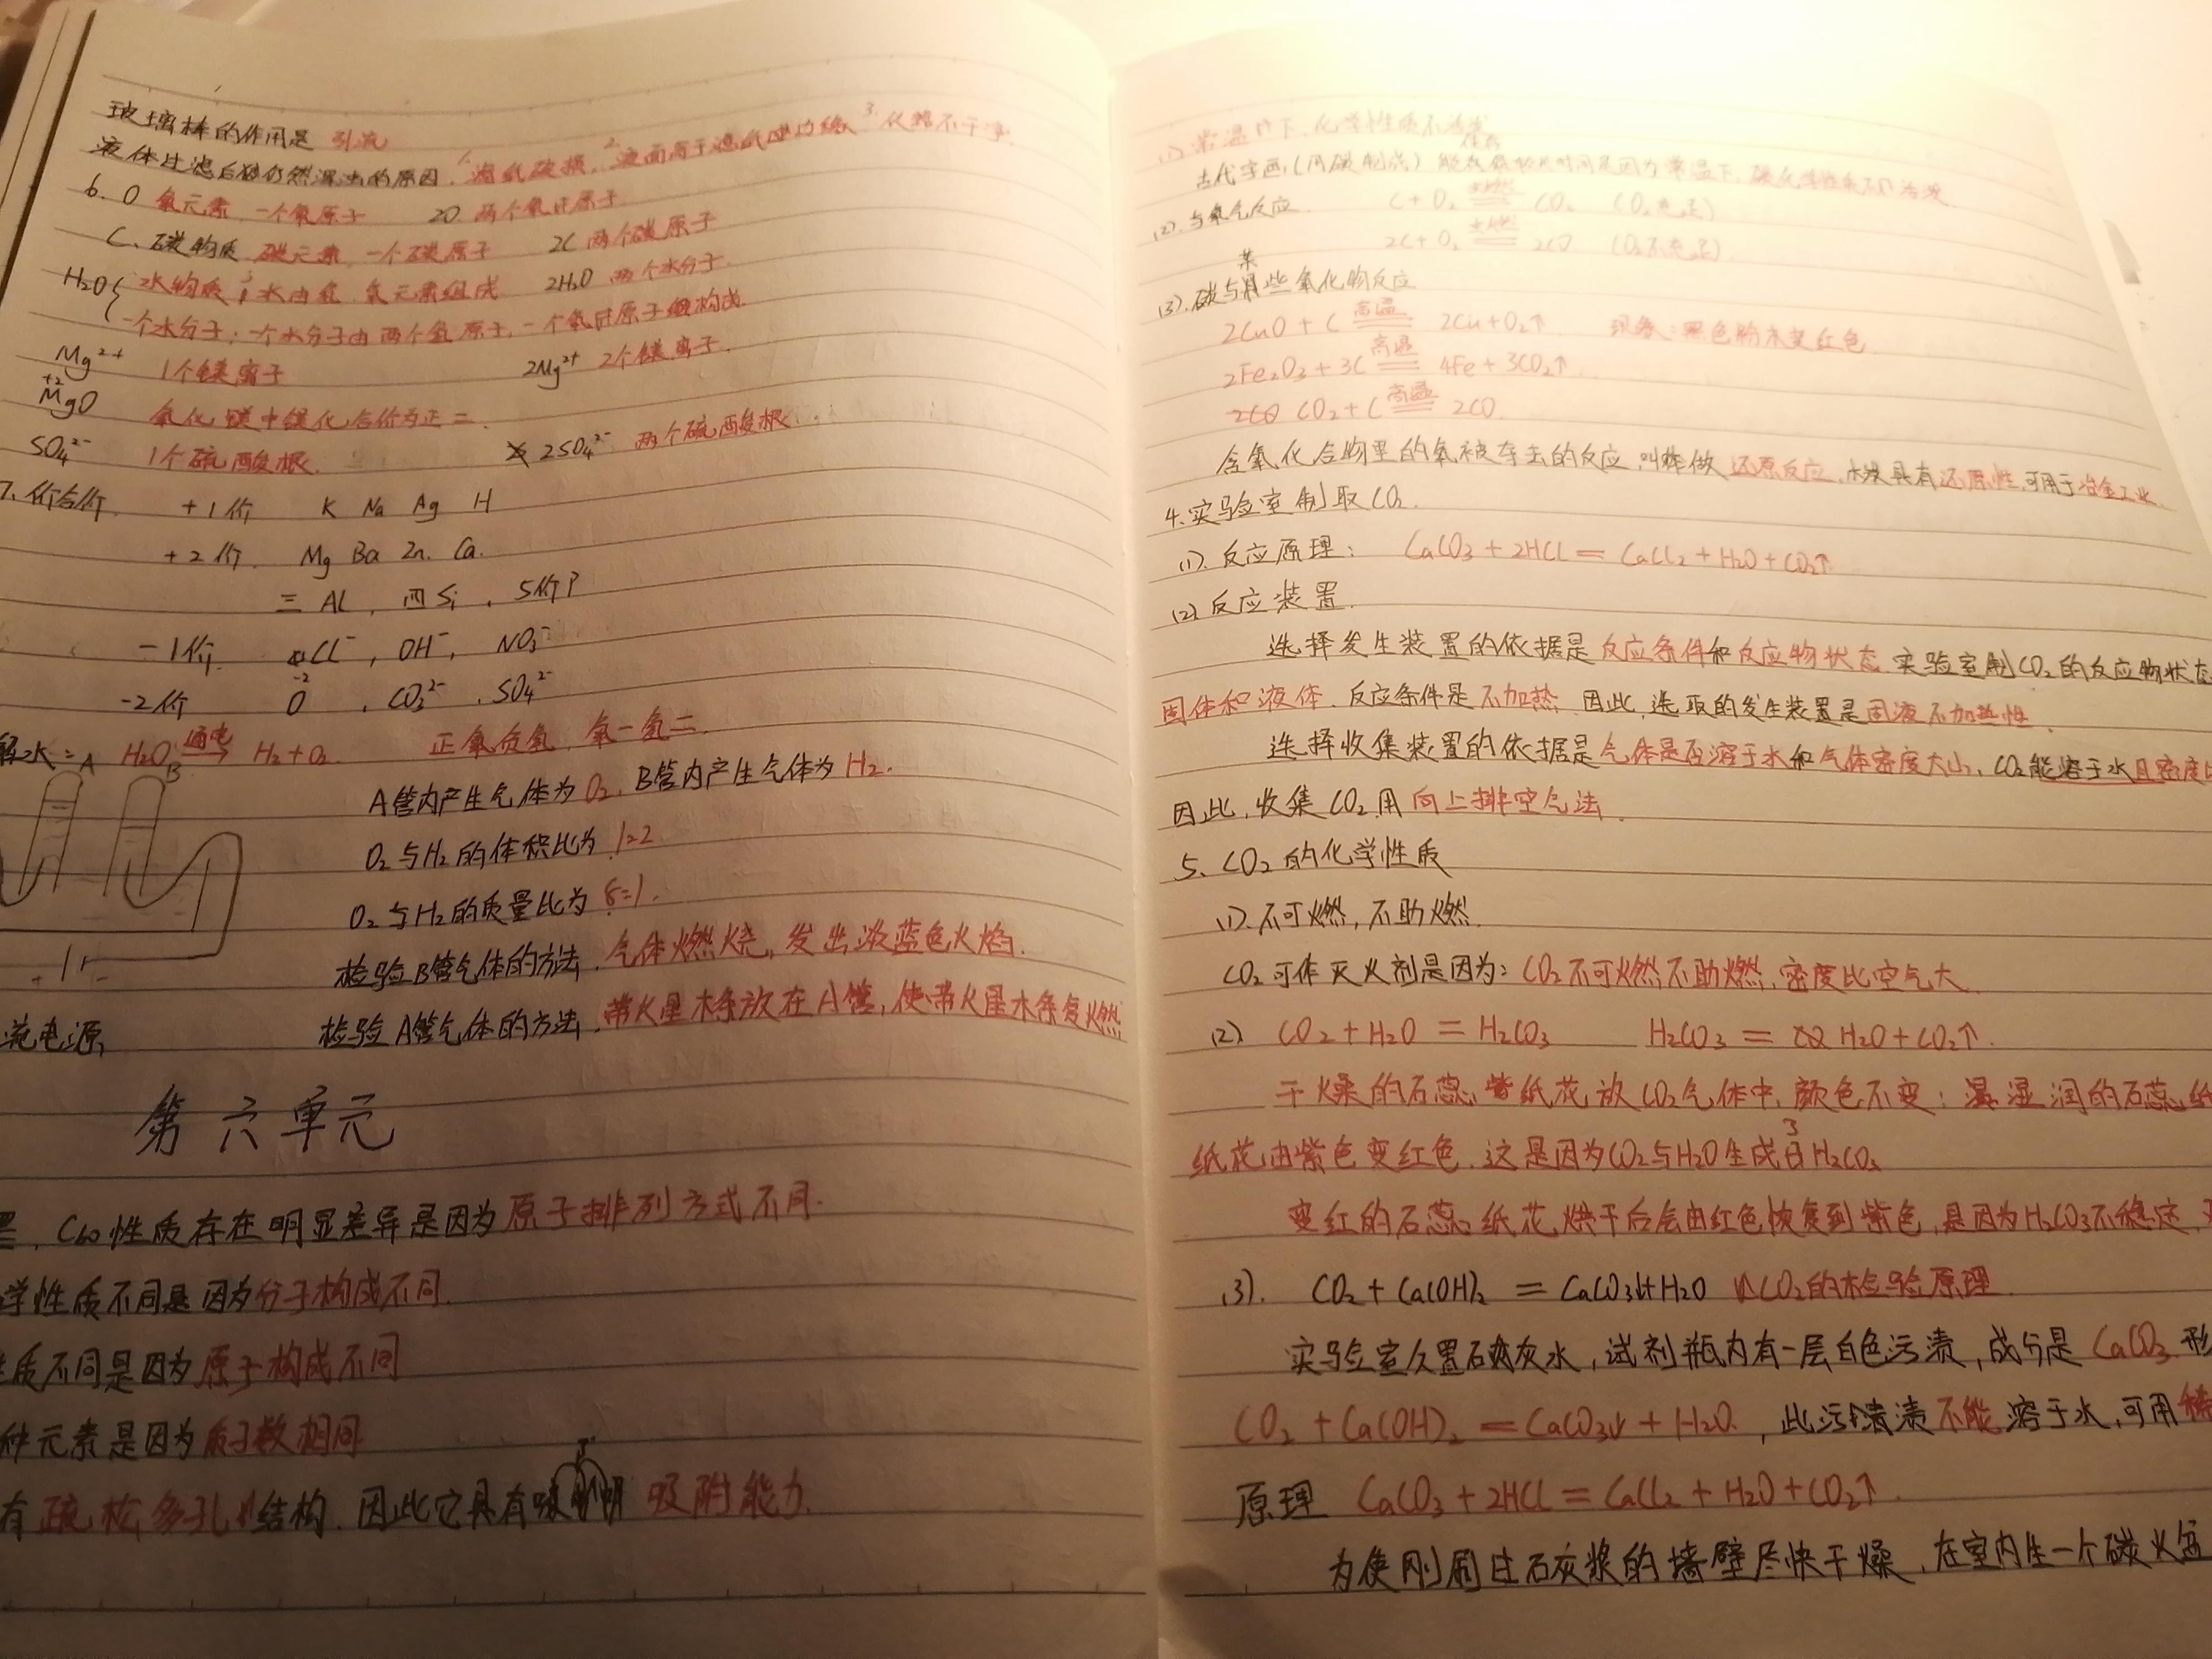 玻璃棒的作用是 引流
液体过滤后仍然浑浊的原因. 1滤纸破损. 2液面高于滤纸边缘. 3仪器不干净.
6. O 氧元素. 一个氧原子 2O 两个氧原子.
C. 碳物质. 碳元素. 一个碳原子 2C 两个碳原子
H₂O { 水物质; 水由氢. 氧元素组成 2H₂O 两个水分子.
一个水分子; 一个水分子由两个氢原子, 一个氧原子构成.
Mg²⁺ 1个镁离子 2Mg²⁺ 2个镁离子.
+2
MgO 氧化镁中镁化合价为正二.
SO₄²⁻ 1个硫酸根. 2SO₄²⁻ 两个硫酸根.
7. 价合价 +1价 K Na Ag H
+2价. Mg Ba Zn. Ca.
三 Al, 四 Si, 5价P
-1价 Cl⁻, OH⁻, NO₃⁻
-2
-2价 O , CO₃²⁻ , SO₄²⁻
解水: H₂O 通电→ H₂+O₂. 正氧负氢, 氧一氢二.
A B
A管内产生气体为O₂, B管内产生气体为H₂.
O₂与H₂的体积比为 1:2.
O₂与H₂的质量比为 8:1.
检验B管气体的方法. 气体燃烧, 发出淡蓝色火焰.
+ -
检验A管气体的方法. 带火星木条放在A管, 使带火星木条复燃
流电源
第六单元
C₆₀性质存在明显差异是因为原子排列方式不同.
学性质不同是因为分子构成不同.
质不同是因为原子构成不同
种元素是因为质子数相同
有疏松多孔结构. 因此它具有 吸附能力.
(1) 常温下, 化学性质不活泼
保存
古代字画(用碳制成) 能 时间是因为常温下, 碳化学性质不活泼
(2). 与氧气反应. C+O₂ 点燃== CO₂ (O₂充足)
2C+O₂ 点燃== 2CO (O₂不充足)
某
(3). 碳与些氧化物反应
2CuO + C 高温== 2Cu+O₂↑ 现象: 黑色粉末变红色
2Fe₂O₃+3C 高温== 4Fe+3CO₂↑.
CO₂+C 高温== 2CO.
含氧化合物里的氧被夺去的反应, 叫做 还原反应, 具有还原性, 可用于冶金工业.
4. 实验室制取CO₂.
(1). 反应原理: CaCO₃+2HCl=CaCl₂+H₂O+CO₂↑
(2) 反应装置.
选择发生装置的依据是反应条件和反应物状态. 实验室制CO₂的反应物状态
固体和液体. 反应条件是不加热. 因此, 选取的发生装置是固液不加热性.
选择收集装置的依据是气体是否溶于水和气体密度大小, CO₂能溶于水且密度
因此, 收集CO₂用向上排空气法.
5. CO₂的化学性质
(1). 不可燃, 不助燃.
CO₂可作灭火剂是因为: CO₂不可燃不助燃, 密度比空气大.
(2) CO₂+H₂O=H₂CO₃ H₂CO₃= H₂O+CO₂↑.
干燥的石蕊紫纸花放CO₂气体中, 颜色不变; 湿润的石蕊
3
纸花由紫色变红色. 这是因为CO₂与H₂O生成H₂CO₃
变红的石蕊纸花烘干后会由红色恢复到紫色, 是因为H₂CO₃不稳定,
(3). CO₂+Ca(OH)₂=CaCO₃↓+H₂O CO₂的检验原理.
实验室久置石灰水, 试剂瓶内有一层白色污渍, 成分是CaCO₃. 形
CO₂+Ca(OH)₂=CaCO₃↓+H₂O. , 此污渍不能溶于水, 可用
原理 CaCO₃+2HCl=CaCl₂+H₂O+CO₂↑.
为使刚刷过石灰浆的墙壁尽快干燥, 在室内生一个碳火盆